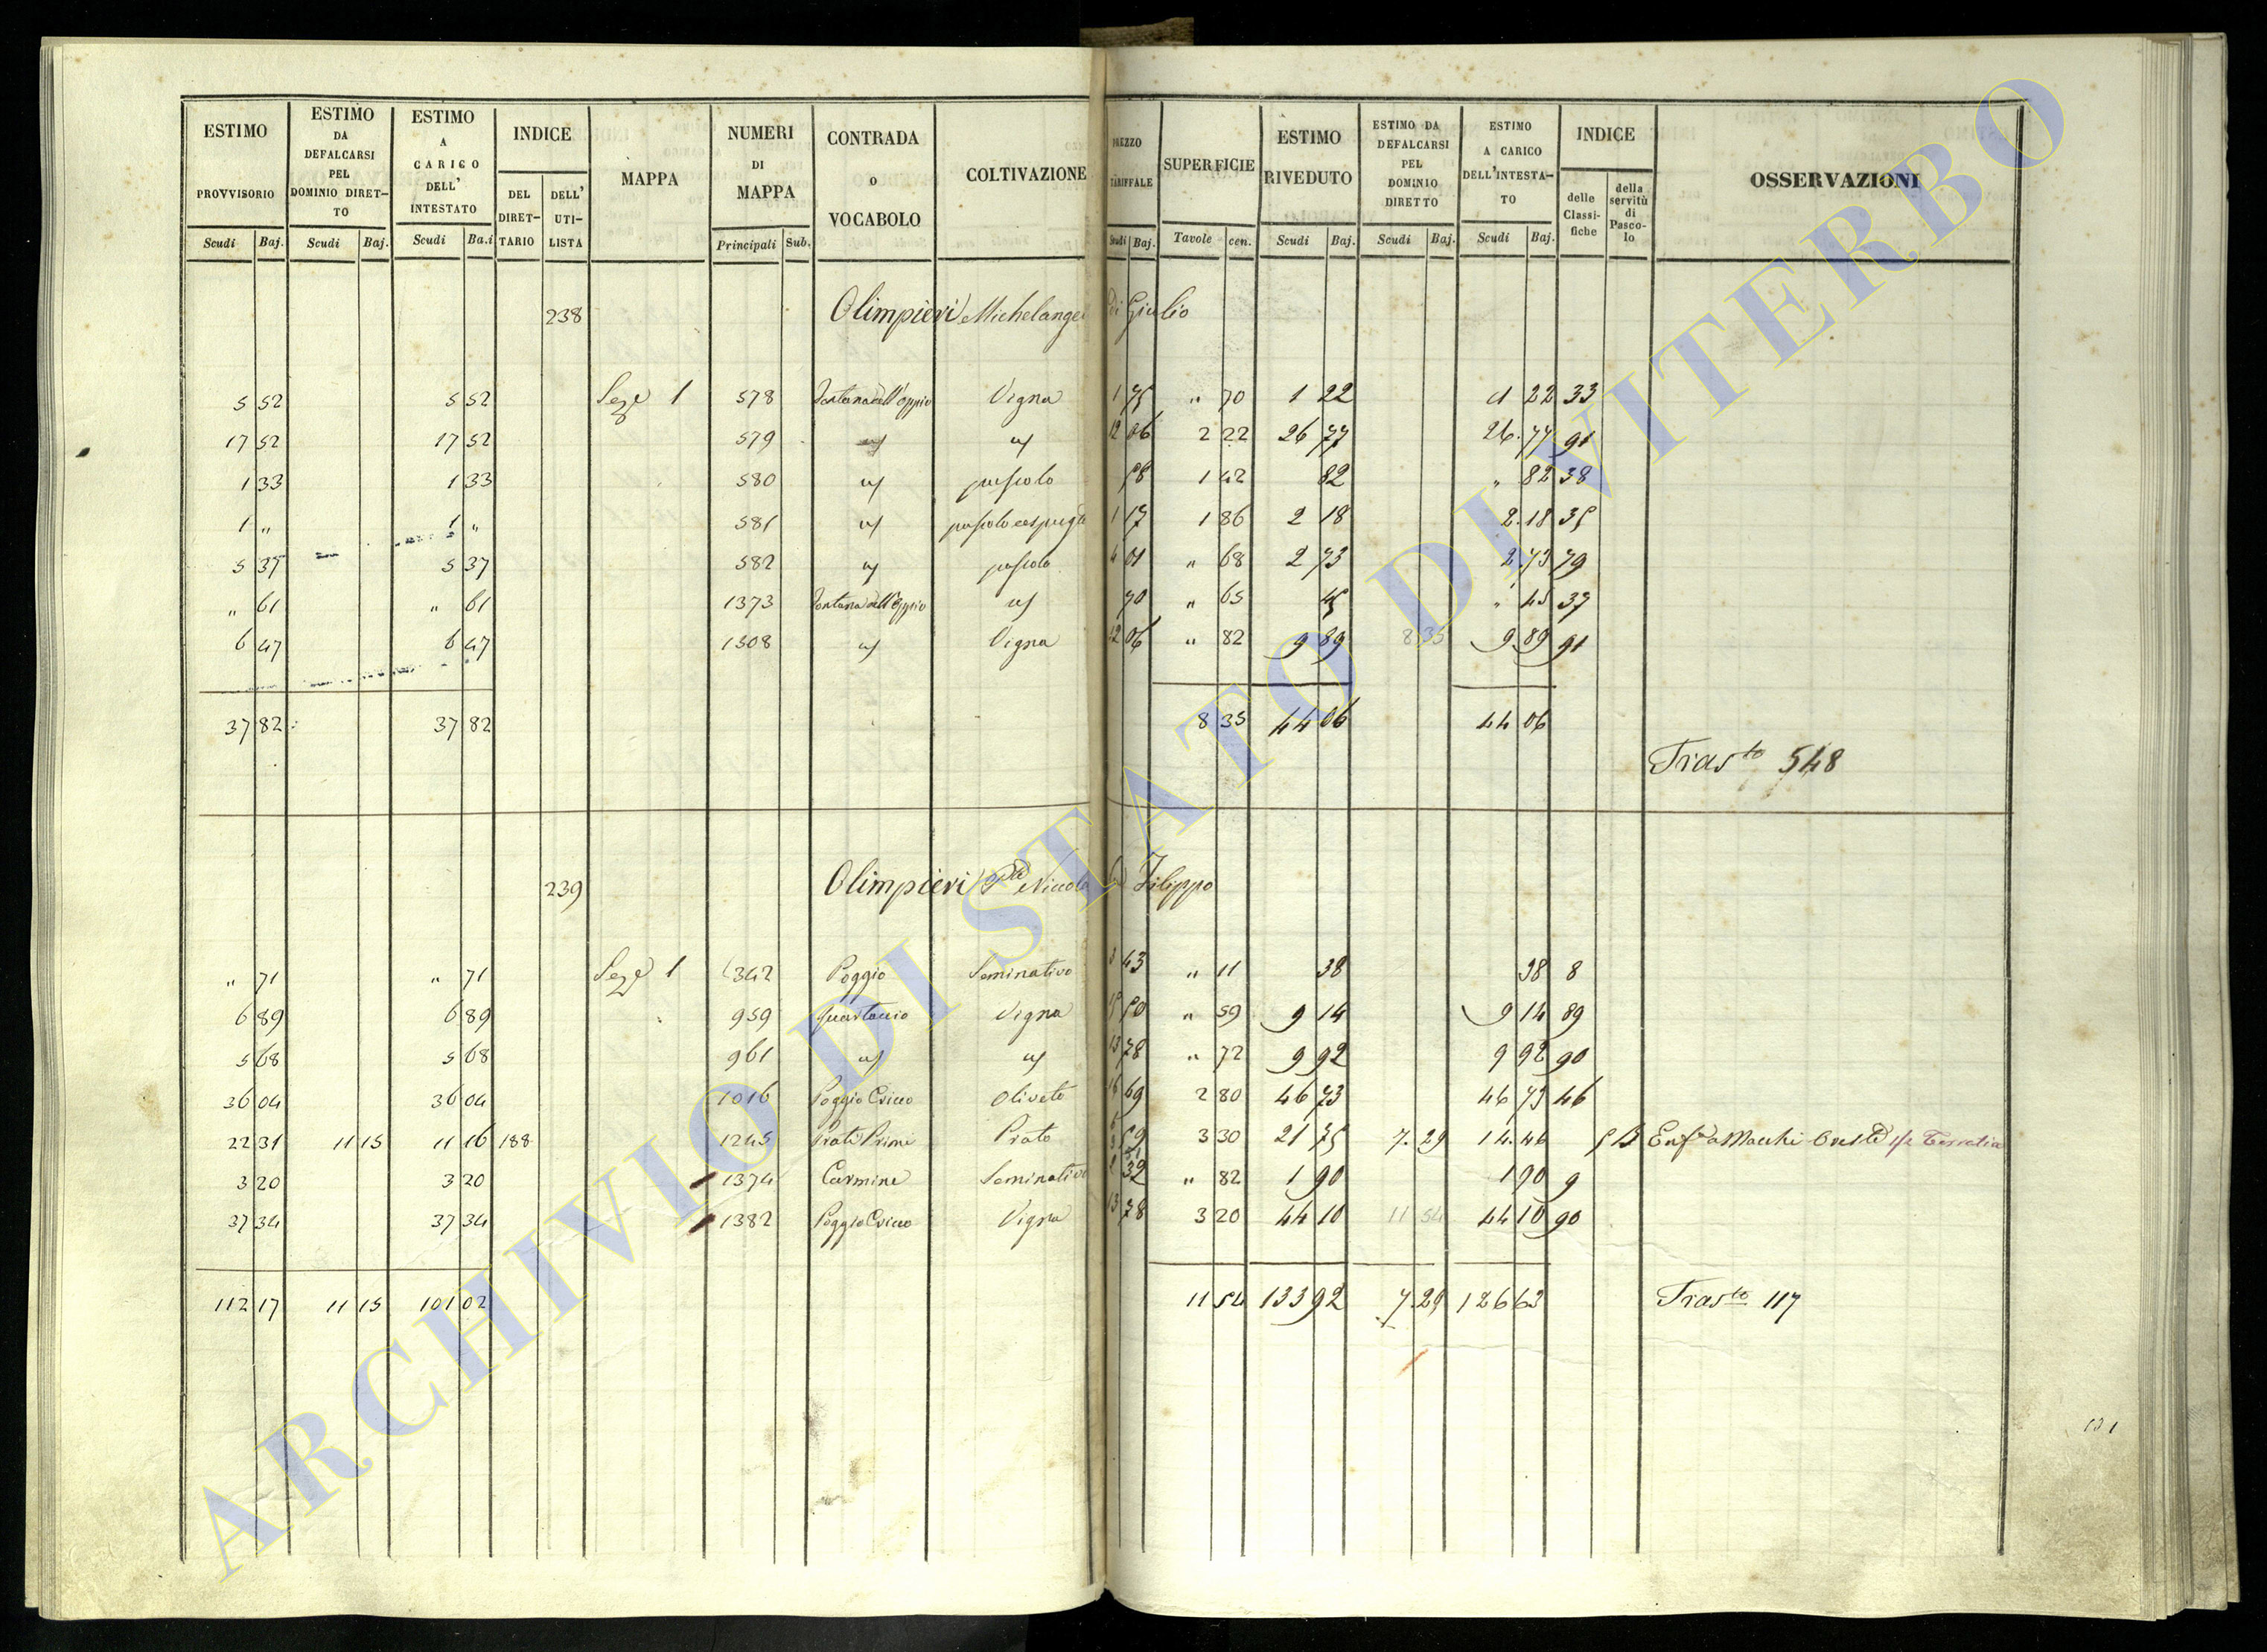 ESTIMO PROVVISORIO Scudi Baj.
ESTIMO DA DEFALCARSI PEL DOMINIO DIRET-TO Scudi Baj.
ESTIMO A CARICO DELL' INTESTATO Scudi Ba.i
INDICE DEL DIRET-TARIO DELL' UTI-LISTA
MAPPA
NUMERI DI MAPPA Principali Sub.
CONTRADA O VOCABOLO
COLTIVAZIONE
PREZZO TARIFFALE Scudi Baj.
SUPERFICIE Tavole cen.
ESTIMO RIVEDUTO Scudi Baj.
ESTIMO DA DEFALCARSI PEL DOMINIO DIRETTO Scudi Baj.
ESTIMO A CARICO DELL'INTESTA-TO Scudi Baj.
INDICE delle Classi-fiche della servitù di Pasco-lo
OSSERVAZIONI
238 Olimpieri Michelangelo di Giulio
5 52 5 52 Seze 1 578 Fontana dell'Oppio Vigna 1 75 " 70 1 22 1 22 33
17 52 17 52 579 " " 12 06 2 22 26 77 26.77 91
1 33 1 33 580 " pascolo 58 1 42 82 " 82 38
1 " 1 " 581 " 1 17 1 86 2 18 2.18 35
5 37 5 37 582 " pascolo 4 01 " 68 2 73 2.73 79
" 61 " 61 1373 Fontana dell'Oppio " 70 " 65 45 " 45 37
6 47 6 47 1508 " Vigna 12 06 " 82 9 89 8 35 9.89 91
37 82 37 82 8 35 44 06 44 06
Trasto 548
239 Olimpieri Niccola Filippo
" 71 " 71 Seze 1 342 Poggio Seminativo 3 43 " 11 38 38 8
6 89 6 89 959 Quartuccio Vigna 15 50 " 59 9 14 9 14 89
5 68 5 68 961 " " 13 78 " 72 9 92 9 92 90
36 04 36 04 1016 Oliveto 16 69 2 80 46 73 46 73 46
22 31 11 15 11 16 188 1245 Prati Primi Prato 6 59 3 30 21 75 7.29 14.46 Macchi
3 20 3 20 1374 Carmine Seminativo 2 32 " 82 1 90 1 90 9
37 34 37 34 1382 Vigna 13 78 3 20 44 10 11 54 44 10 90
112 17 11 15 101 02 11 54 133 92 7.29 126 63 Trasto 117
ARCHIVIO DI STATO DI VITERBO